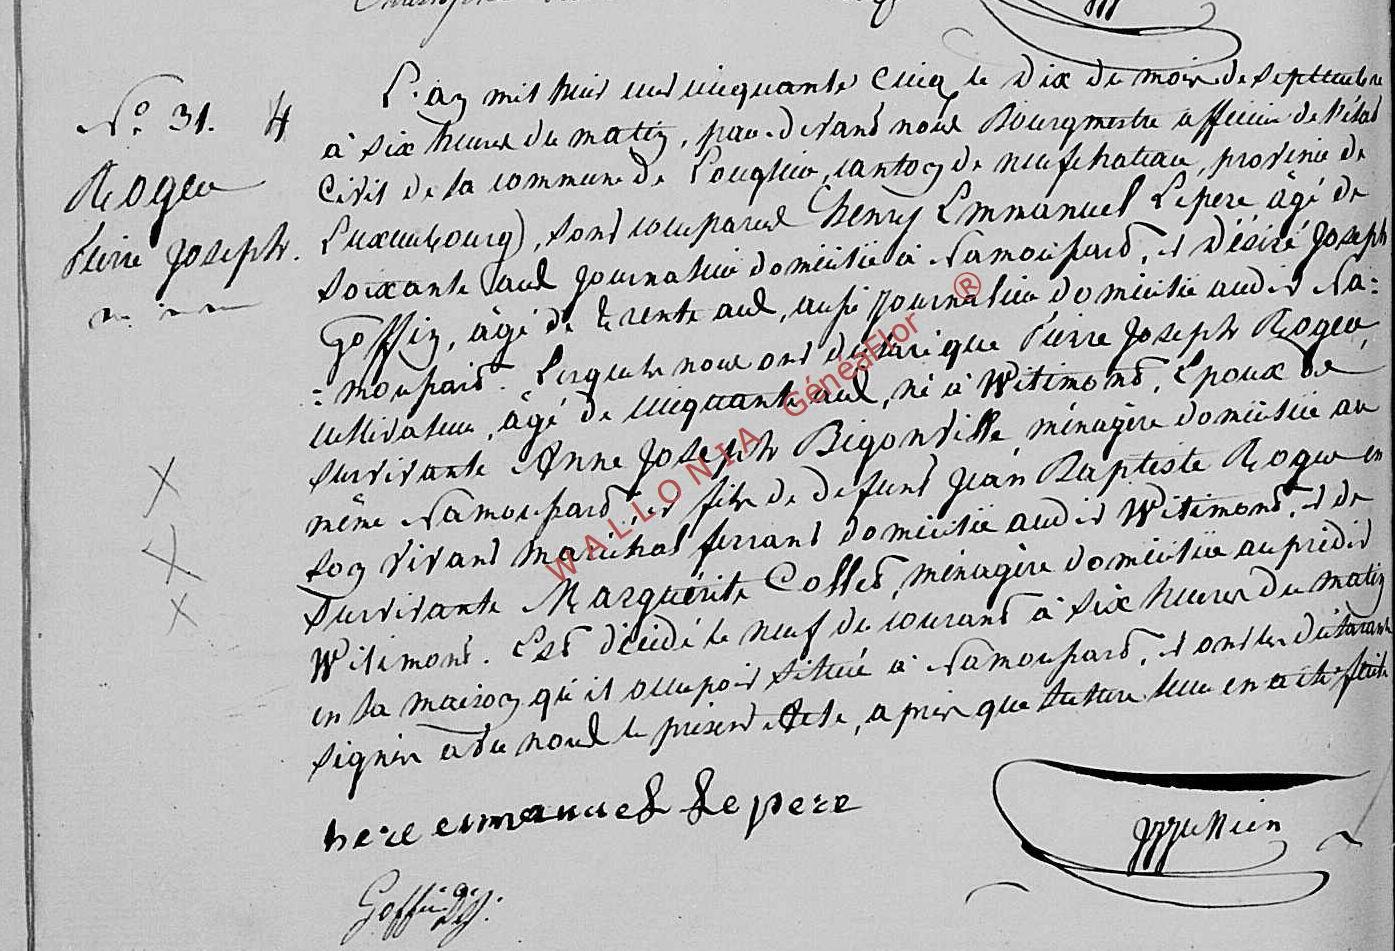 N° 31. 4
Roger
Pierre Joseph.
L'an mil huit cent cinquante cinq le dix du mois de septembre
à six heures du matin, par-devant nous Bourgmestre officier de l'état
Civil de la commune de Longlier, canton de neufchateau, province de
Luxembourg), sont comparus Henry Emmanuel Lepere âgé de
soixante ans journalier domicilié à Namoussard, et Désiré Joseph
Goffin, âgé de trente ans, aussi journalier domicilié audit Na=
=moussard. Lesquels nous ont déclaré que Pierre Joseph Roger,
cultivateur, âgé de cinquante ans, né à Witimont, Epoux de
survivante Anne Joseph Bigonville ménagère domiciliée au
même Namoussard, et fils de defunt Jean Baptiste Roger en
son vivant maréchal ferrant domicilié audit Witimont, et de
survivante Marguérite Collet, ménagère domiciliée au prédit
Witimont. Est décédé le neuf du courant à six heures du matin
en la maison qu'il occupoit située à Namoussard, et ont les déclarants
signer avec nous le présent acte, après que lecture leur en a été faite
WALLONIA GénéaFlor ®
here emmanuel Lepere
Goffin